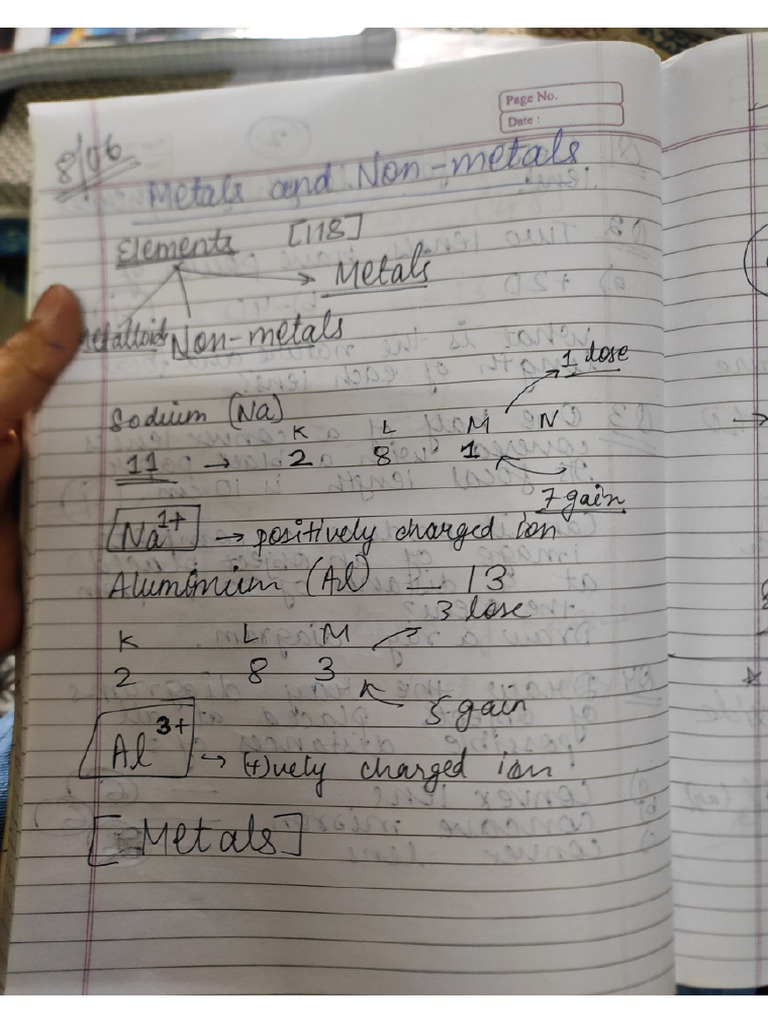 Page No.
Date :
8/06
Metals and Non-metals
Elements [118]
Metals
Metalloids Non-metals
1 lose
Sodium (Na)
K L M N
11 → 2 8 1
7 gain
Na1+ → positively charged ion
Aluminium (Al) — 13
3 lose
K L M
2 8 3
5 gain
Al3+ → (+)vely charged ion
[Metals]